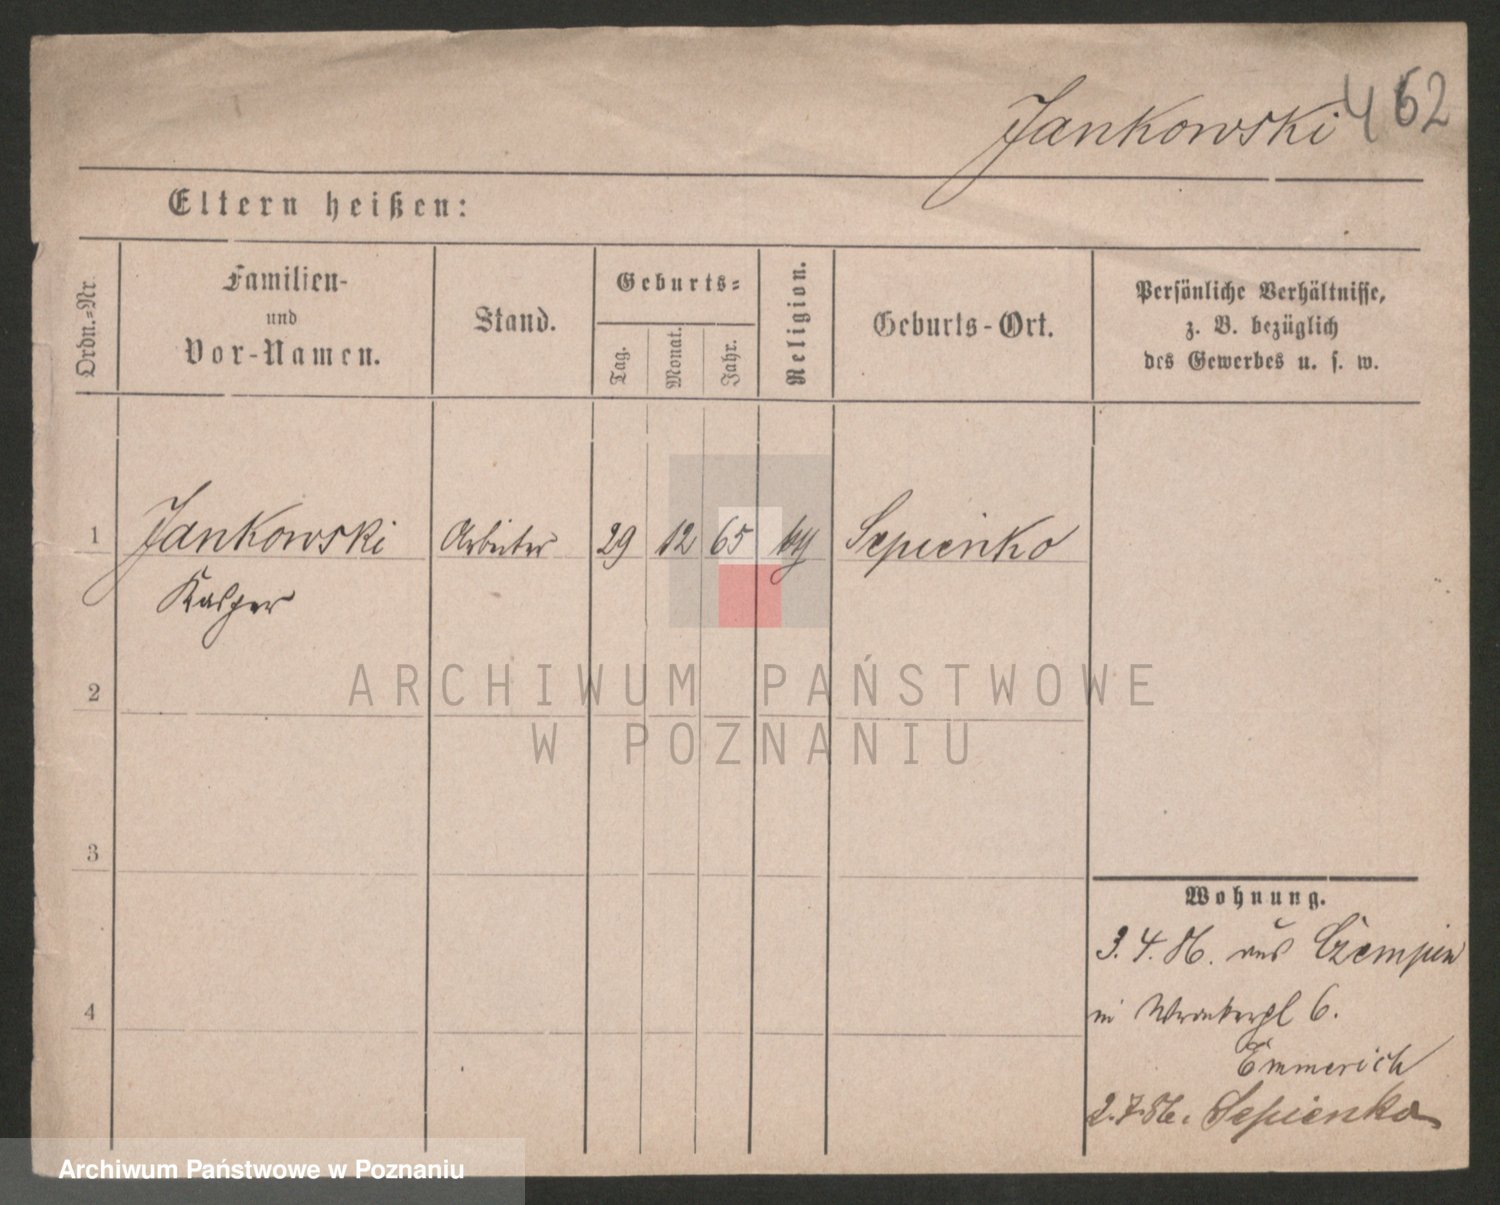 Jankowski 462
Eltern heißen:
Ordn.-Nr.
Familien-
und
Vor-Namen.
Stand.
Geburts-
Tag.
Monat.
Jahr.
Religion.
Geburts-Ort.
Persönliche Verhältnisse,
z. B. bezüglich
des Gewerbes u. s. w.
1 Jankowski Arbeiter 29 12 65 Sepienko
Kasper
2
3
4
Wohnung.
3. 4. 86. aus Czempin
in 6.
Emmerich
2.7.86. Sepienko
ARCHIWUM PAŃSTWOWE
W POZNANIU
Archiwum Państwowe w Poznaniu